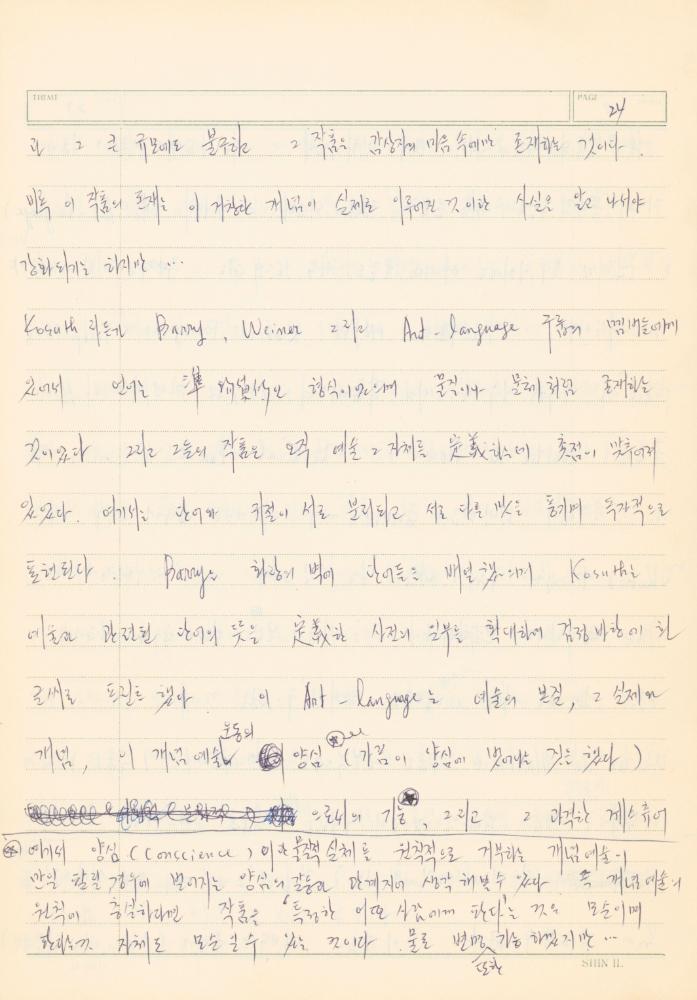 THEME
PAGE
24
과 그 큰 규모에도 불구하고 그 작품은 감상자의 마음 속에만 존재하는 것이다.
비록 이 작품의 존재는 이 거창한 개념이 실제로 이루어진 것이란 사실을 알고 나서야
강화되기는 하지만…
Kosuth 라든가 Barry, Weiner 그리고 Art-language 구룹의 멤버들에게
있어서 언어는 準 物質的인 형식이었으며 물질이나 물체처럼 존재하는
것이었다 그리고 그들의 작품은 오직 예술 그 자체를 定義하는데 촛점이 맞추어져
있었다. 여기서는 단어와 귀절이 서로 분리되고 서로 다른 맛을 풍기며 독자적으로
표현된다 Barry는 화랑의 벽에 단어들을 배열했으며 Kosuth는
예술과 관련된 단어의 뜻을 定義한 사전의 일부를 확대하여 검정 바탕에 흰
글씨로 프린트 했다. 이 Art-language는 예술의 본질, 그 실제와
개념, 이 개념예술 운동의 양심 (가끔이 양심에 벗어나는 짓을 했다)
으로서의 기능, 그리고 그 과격한 제스츄어
여기서 양심 (conscience) 이란 물질적 실체를 원칙적으로 거부하는 개념예술이
만일 팔릴 경우에 벌어지는 양심의 갈등과 관계지어 생각해 볼 수 있다 즉 개념예술의
원칙에 충실하다면 작품을 '특정한 어떤 사람에게 판다'는 것은 모순이며
한다는 것 자체도 모순일 수 있는 것이다. 물론 변명 또한 가능하겠지만…
SHIN IL